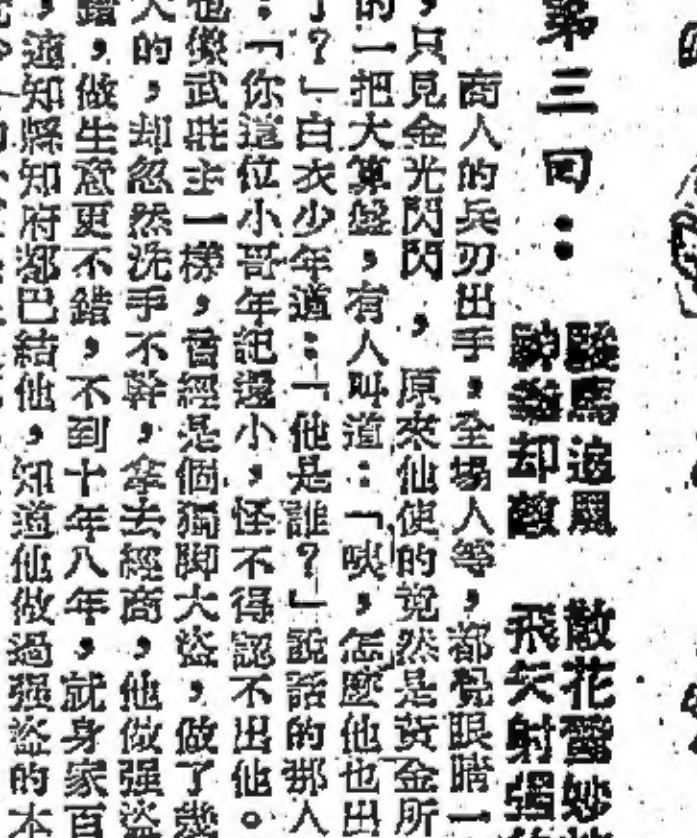 第三回：
駿馬追風　散花驚妙
却敵　飛矢射強
商人的兵刃出手，全場人等，都覺眼睛一
，只見金光閃閃，原來他使的竟然是黃金所
的一把大算盤，有人叫道：「咦，怎麼他也出
了？」白衣少年道：「他是誰？」說話的那人
：「你這位小哥年記還小，怪不得認不出他。
他像武莊主一樣，曾經是個獨脚大盜，做了幾
大的，却忽然洗手不幹，拿去經商，他做强盜
錯，做生意更不錯，不到十年八年，就身家百
，連知縣知府都巴結他，知道他做過强盜的本